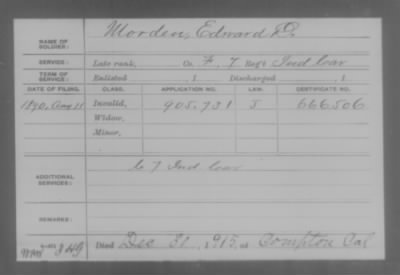 NAME OF SOLDIER: Morden, Edward D.
SERVICE: Late rank, Co. F, 7 Reg't Ind Cav
TERM OF SERVICE: Enlisted , 1 Discharged , 1
DATE OF FILING. CLASS. APPLICATION NO. LAW. CERTIFICATE NO.
1890, Aug 11 Invalid, 905.731 J 666.506
Widow,
Minor,
ADDITIONAL SERVICES: 7 Ind Cav
REMARKS:
Died Dec 31, 1915, at Compton Cal